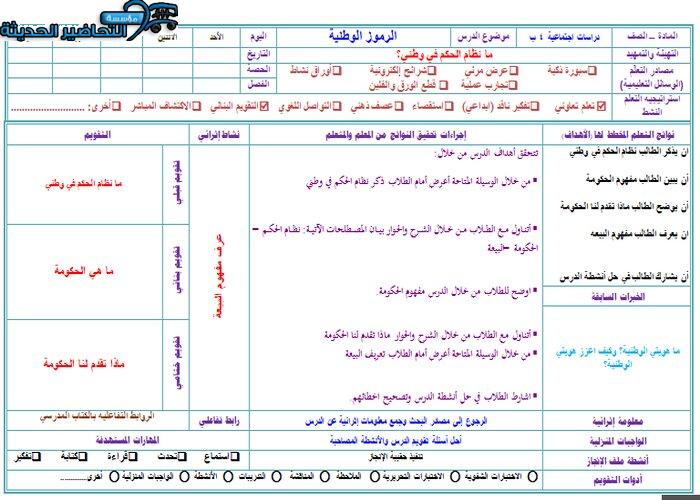 مؤسسة التحاضير الحديثة
المادة – الصف
دراسات اجتماعية ٤ ب
موضوع الدرس
الرموز الوطنية
اليوم
الأحد
الاثنين
التهيئة والتمهيد
ما نظام الحكم في وطني؟
التاريخ
مصادر التعلم
(الوسائل التعليمية)
سبورة ذكية
عرض مرئي
شرائح إلكترونية
أوراق نشاط
تجارب عملية
قطع الورق والفلين
الحصة
الفصل
استراتيجيه التعلم
النشط
تعلم تعاوني
تفكير ناقد (إبداعي)
استقصاء
عصف ذهني
التواصل اللغوي
التقويم البنائي
الاكتشاف المباشر
أخرى: ........................
نواتج التعلم المخطط لها (الأهداف)
إجراءات تحقيق النواتج من المعلم والمتعلم
نشاط إثرائي
التقويم
أن يذكر الطالب نظام الحكم في وطني
أن يبين الطالب مفهوم الحكومة
أن يوضح الطالب ماذا تقدم لنا الحكومة
أن يعرف الطالب مفهوم البيعه
أن يشارك الطالب في حل أنشطة الدرس
الخبرات السابقة
ما هويتي الوطنية؟ وكيف اعزز هويتي
الوطنية؟
تتحقق أهداف الدرس من خلال:
من خلال الوسيلة المتاحة أعرض أمام الطلاب ذكر نظام الحكم في وطني
أتناول مع الطلاب من خلال الشرح والحوار بيان المصطلحات الآتية: نظام الحكم –
الحكومة –البيعة
اوضح للطلاب من خلال الدرس مفهوم الحكومة.
أتناول مع الطلاب من خلال الشرح والحوار ماذا تقدم لنا الحكومة
من خلال الوسيلة المتاحة أعرض أمام الطلاب تعريف البيعة
اشارط الطلاب في حل أنشطة الدرس وتصحيح اخطائهم.
عرف مفهوم البيعة
تقويم قبلي
ما نظام الحكم في وطني
تقويم بنائي
ما هي الحكومة
تقويم ختامي
ماذا تقدم لنا الحكومة
معلومة إثرائية
الرجوع إلى مصادر البحث وجمع معلومات إثرائية عن الدرس
رابط تفاعلي
الروابط التفاعليه بالكتاب المدرسي
الواجبات المنزلية
أحل أسئلة تقويم الدرس والأنشطة المصاحبة
المهارات المستهدفة
أنشطة ملف الإنجاز
تنفيذ حقيبة الإنجاز
استماع
تحدث
قراءة
كتابة
تفكير
أدوات التقويم
الاختبارات الشفوية
الاختبارات التحريرية
الملاحظة
المناقشة
التدريبات
الأنشطة
الواجبات المنزلية
أخرى.............